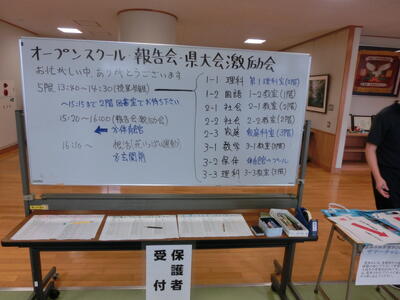 オープンスクール・報告会・県大会激励会
お忙しい中、ありがとうございます
5限 13:40～14:30(授業参観)
～15:15まで 2階図書室でお待ち下さい
15:20～16:00(報告会・激励会)
← 体育館
16:10～
玄関前
1-1 理科 第1理科室(2階)
1-2 国語 1-2教室(1階)
2-1 社会 2-1教室(2階)
2-2 社会 2-2教室(2階)
2-3 家庭 被服室(3階)
3-1 数学 3-1教室(3階)
3-2 保体 体育館orプール
3-3 理科 3-3教室(3階)
保護者
受付